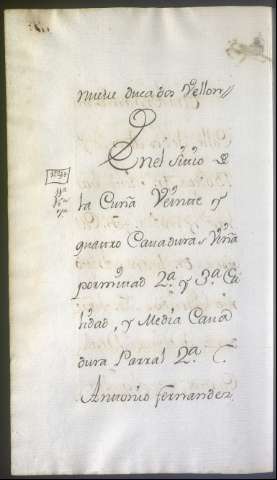 nueve ducados Vellon//
En el sitio de
la Cuña Veinte y
quatro Cavaduras Viña
por mitad 2ª y 3ª Ca
lidad, y Media Cava
dura Parral 2ª C.
Antonio Fernandez